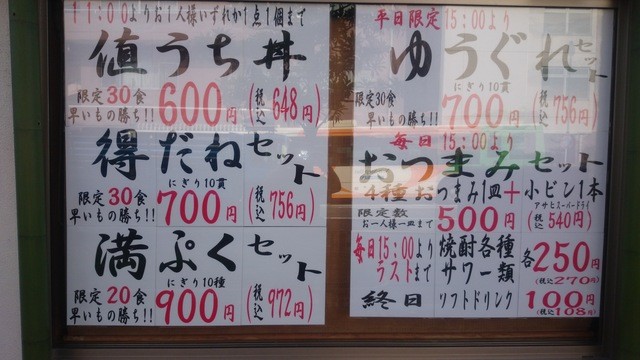 11:00よりお1人様いずれか1点1個まで
値うち丼
限定30食
早いもの勝ち!!
600円
(税込648円)
得だねセット
にぎり10貫
限定30食
早いもの勝ち!!
700円
(税込756円)
満ぷくセット
にぎり10種
限定20食
早いもの勝ち!!
900円
(税込972円)
平日限定15:00より
ゆうぐれセット
にぎり10貫
限定30食
早いもの勝ち!!
700円
(税込756円)
毎日15:00より
おつまみセット
4種おつまみ1皿+小ビン1本
アサヒスーパードライ
限定数
お一人様一皿まで
500円
(税込540円)
毎日15:00より
ラストまで
焼酎各種
サワー類
各250円
(税込270円)
終日
ソフトドリンク
100円
(税込108円)